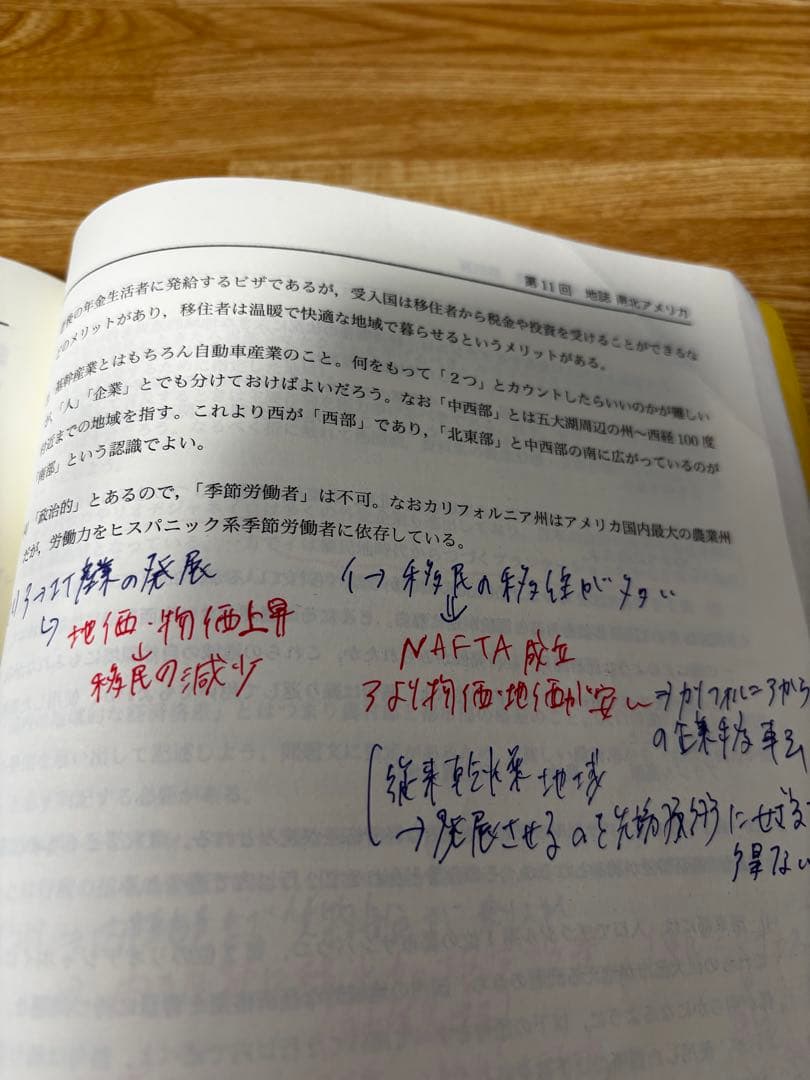 第11回 地誌 南北アメリカ
後の年金生活者に発給するビザであるが，受入国は移住者から税金や投資を受けることができるな
どのメリットがあり，移住者は温暖で快適な地域で暮らせるというメリットがある。
基幹産業とはもちろん自動車産業のこと。何をもって「２つ」とカウントしたらいいのかが難しい
が，「人」「企業」とでも分けておけばよいだろう。なお「中西部」とは五大湖周辺の州～西経100度
付近までの地域を指す。これより西が「西部」であり，「北東部」と中西部の南に広がっているのが
「南部」という認識でよい。
「政治的」とあるので，「季節労働者」は不可。なおカリフォルニア州はアメリカ国内最大の農業州
だが，労働力をヒスパニック系季節労働者に依存している。
ア→IT産業の発展
↳ 地価・物価上昇
↓
移民の減少
イ→ 移民の移住が多い
⇓
NAFTA 成立
アより物価・地価が安い ⇒ カリフォルニアから
の企業移転
従来乾燥地域
→ 発展させるの に せざる
得ない